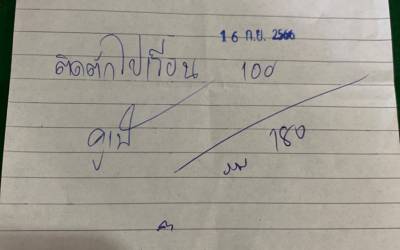 16 ก.ย. 2566
ติดตักไปเรือน 100
คูเป้
180